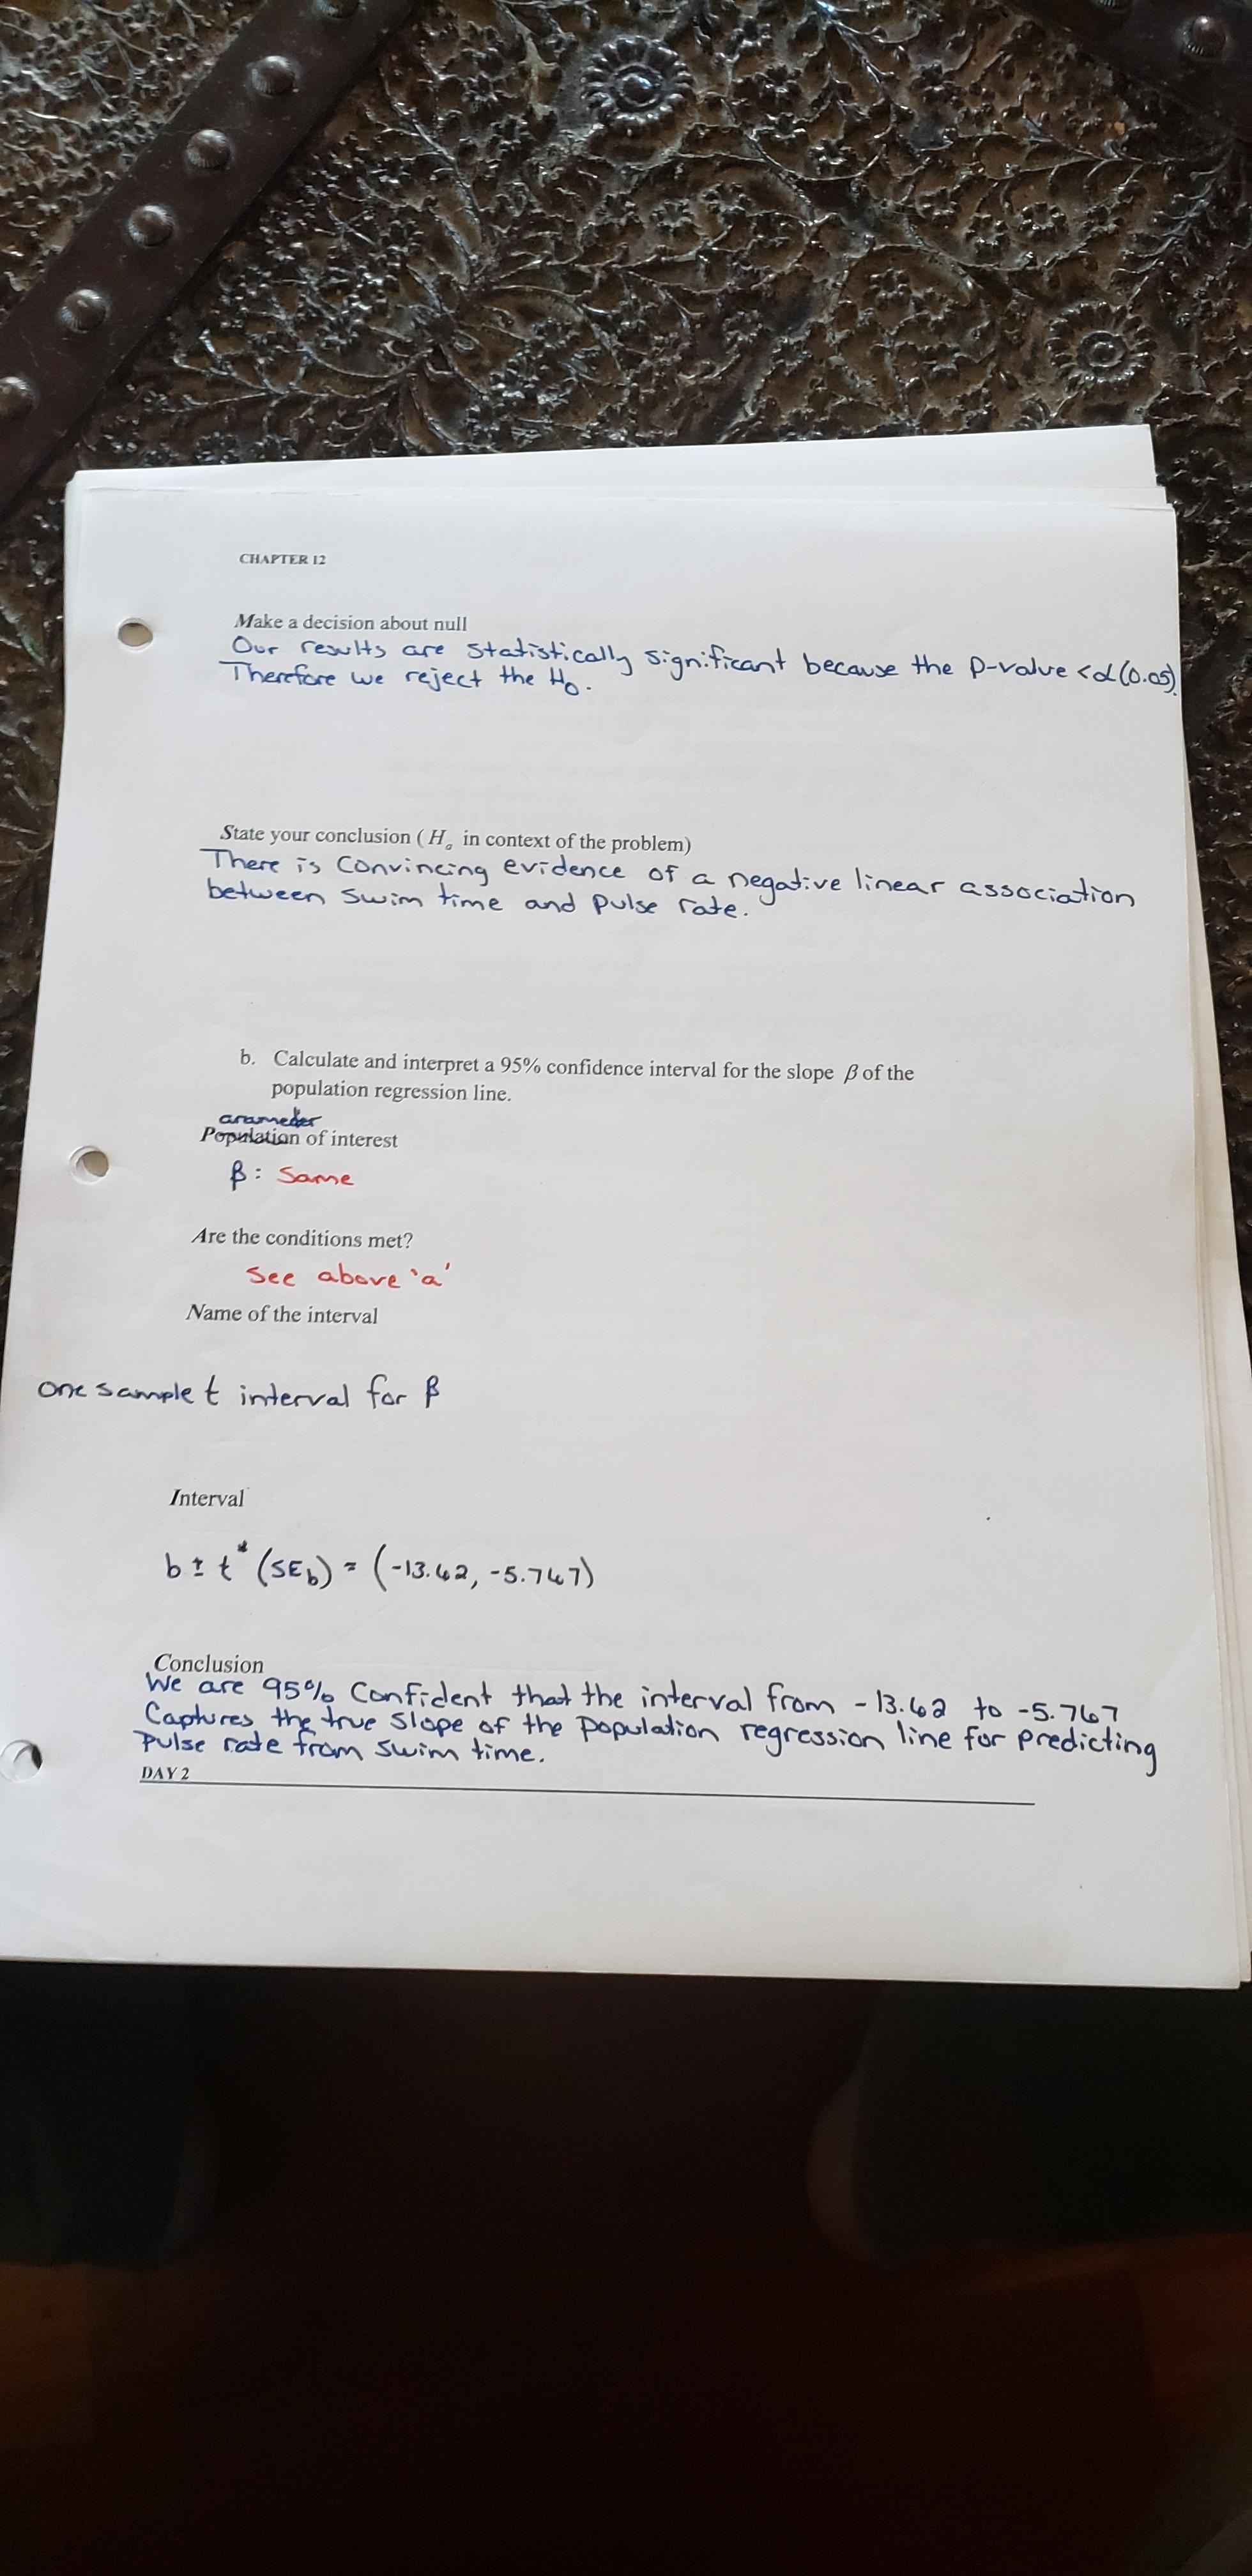 CHAPTER 12
Make a decision about null
Our results are statistically significant because the p-value < α (0.05).
Therefore we reject the H₀.
State your conclusion ( Hₐ in context of the problem)
There is convincing evidence of a negative linear association
between swim time and pulse rate.
b. Calculate and interpret a 95% confidence interval for the slope β of the
population regression line.
arameter
Population of interest
β: same
Are the conditions met?
see above 'a'
Name of the interval
one sample t interval for β
Interval
b ± t* (SEb) = (-13.62, -5.767)
Conclusion
We are 95% confident that the interval from -13.62 to -5.767
captures the true slope of the population regression line for predicting
pulse rate from swim time.
DAY 2